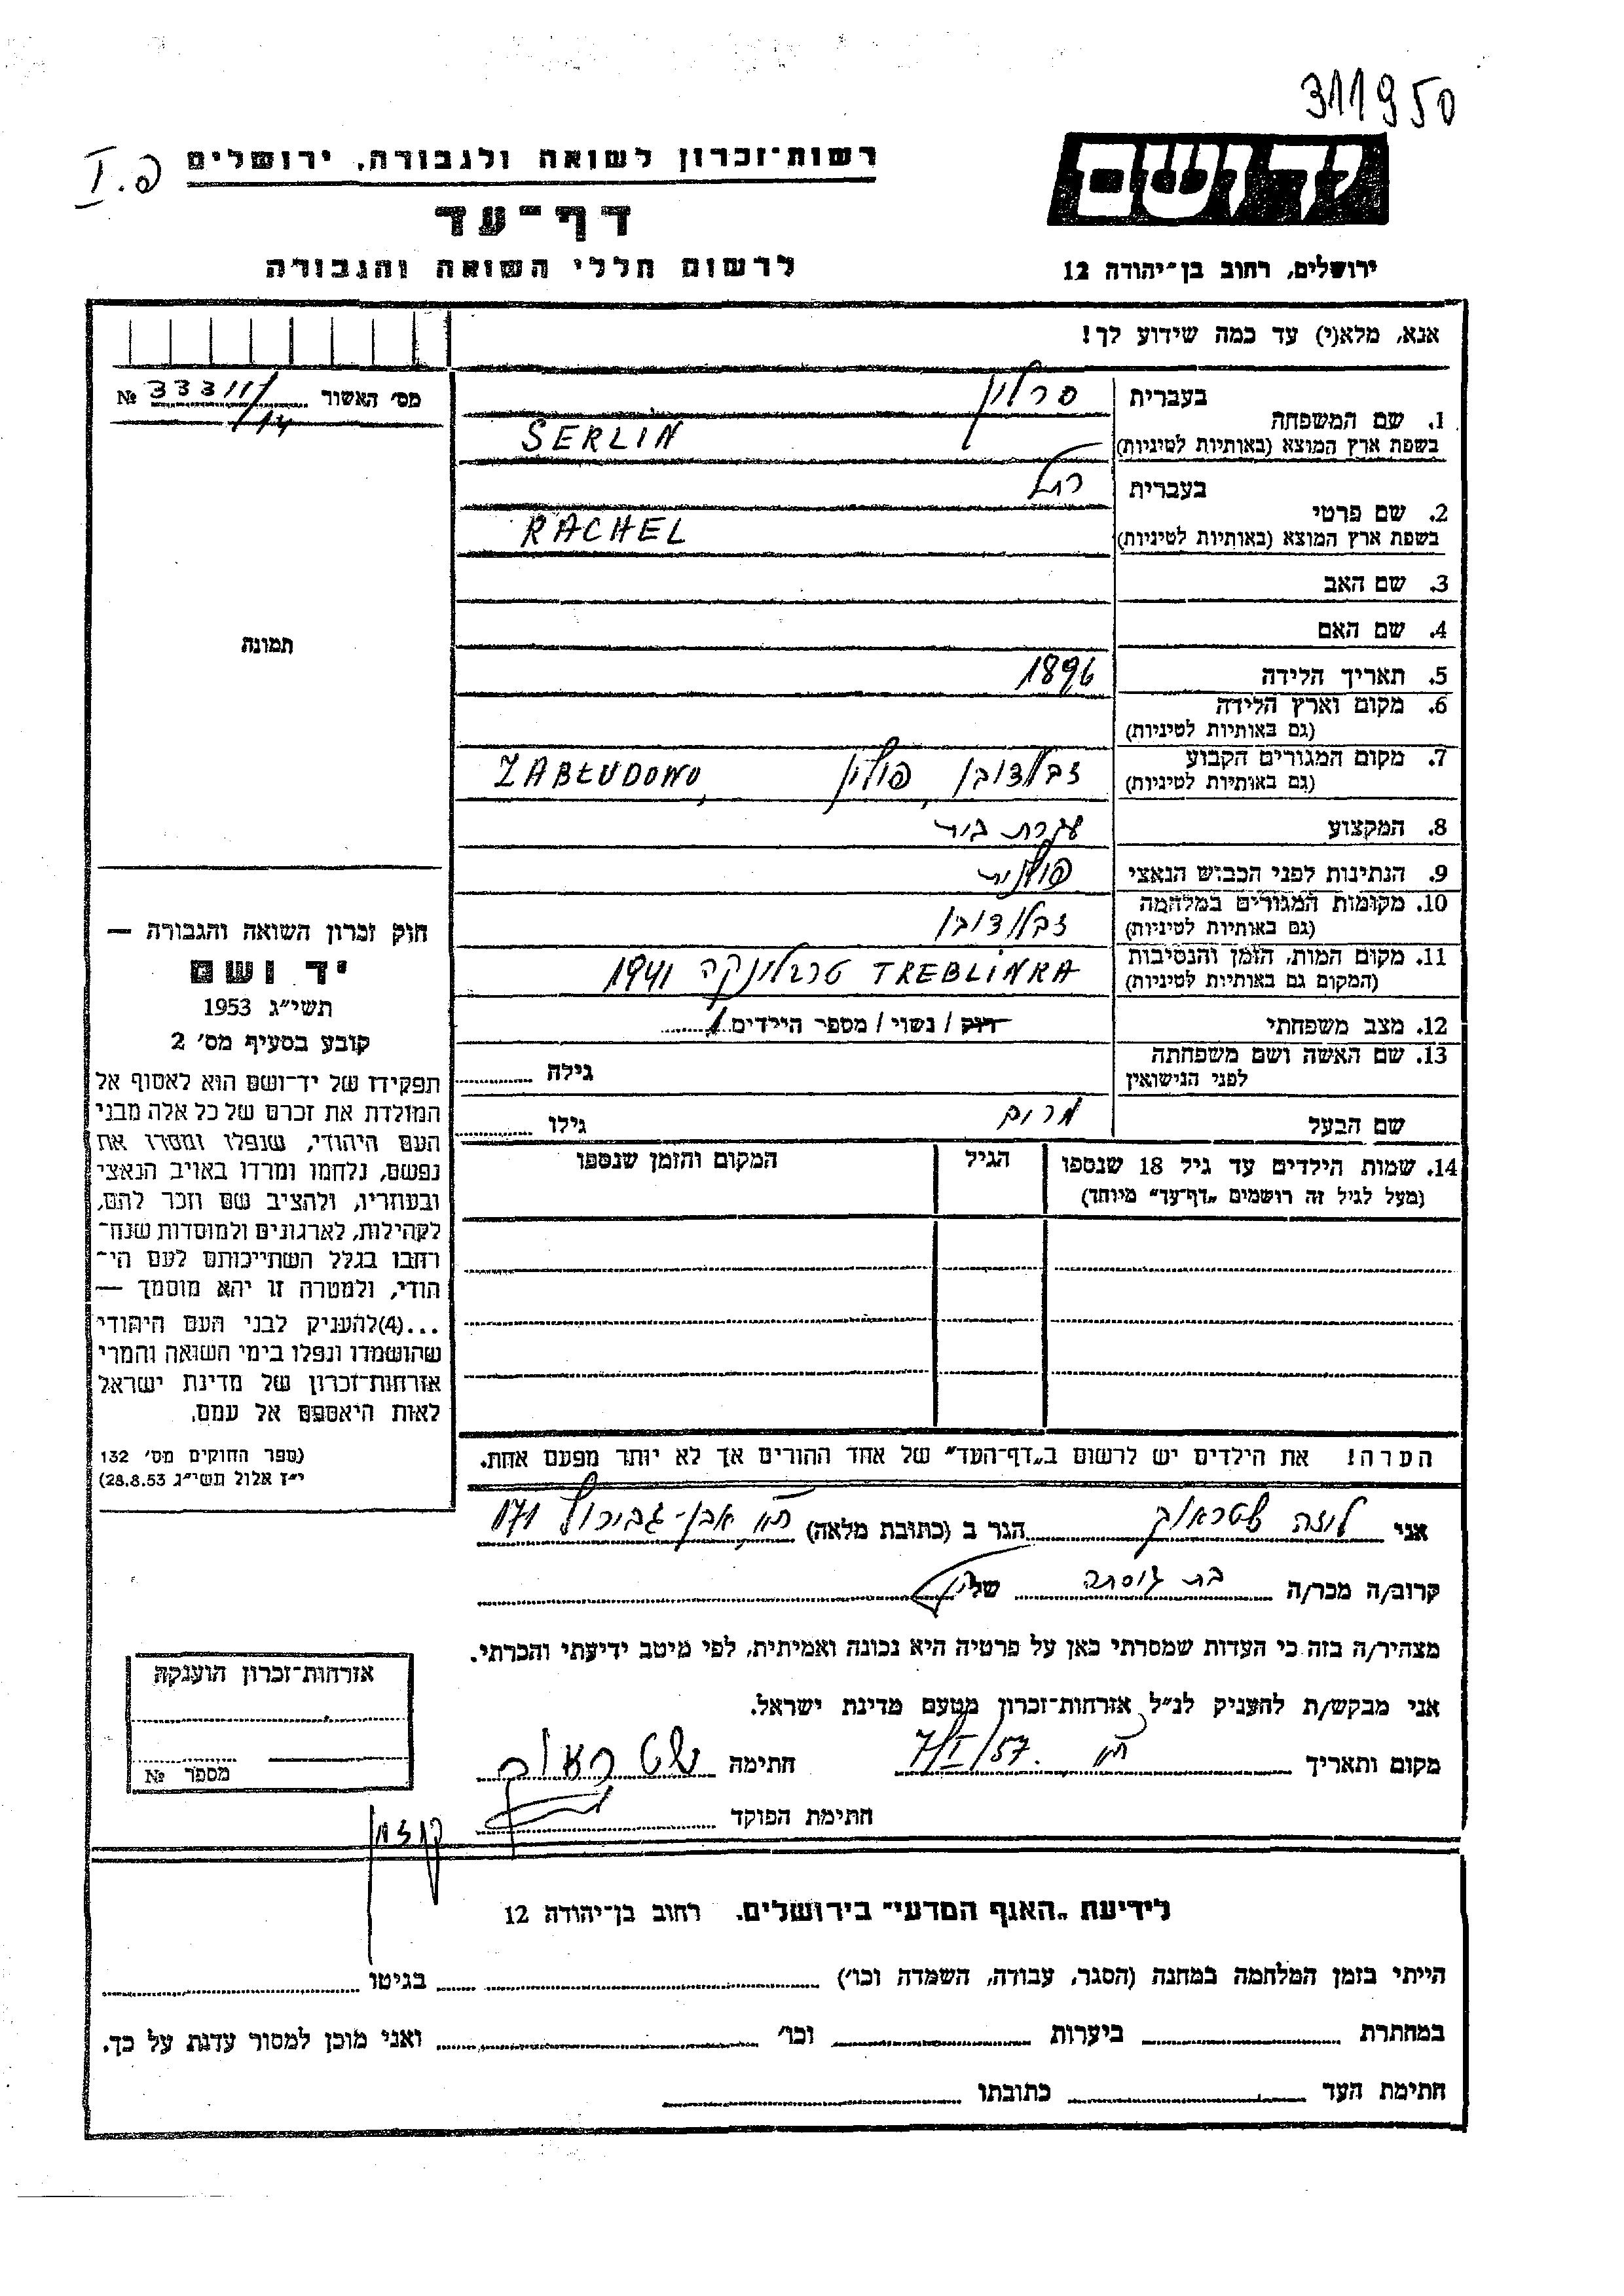 311950
רשות־זכרון לשואה ולגבורה, ירושלים
I .פ
יד ושם
דף־עד
לרשום חללי השואה והגבורה
ירושלים, רחוב בן־יהודה 12
אנא, מלא(י) עד כמה שידוע לך!
מס׳ האשור № 333111/14
1. שם המשפחה
בעברית סרלין
בשפת ארץ המוצא (באותיות לטיניות) SERLIN
2. שם פרטי
בעברית רחל
בשפת ארץ המוצא (באותיות לטיניות) RACHEL
3. שם האב
4. שם האם
תמונה
5. תאריך הלידה 1896
6. מקום וארץ הלידה
(גם באותיות לטיניות)
7. מקום המגורים הקבוע זבלודובו, פולין ZABŁUDOWO,
(גם באותיות לטיניות)
8. המקצוע עקרת בית
9. הנתינות לפני הכביש הנאצי פולנית
10. מקומות המגורים במלחמה זבלודובו
(גם באותיות לטיניות)
11. מקום המות, הזמן והנסיבות TREBLINKA טרבלינקה 1941
(המקום גם באותיות לטיניות)
12. מצב משפחתי רוק / נשוי / מספר הילדים 1
13. שם האשה ושם משפחתה
לפני הנישואין גילה
שם הבעל גילו
14. שמות הילדים עד גיל 18 שנספו הגיל המקום והזמן שנספו
(מעל לגיל זה רושמים „דף־עד״ מיוחד)
הערה! את הילדים יש לרשום ב„דף־העד״ של אחד ההורים אך לא יותר מפעם אחת.
חוק זכרון השואה והגבורה —
יד ושם
תשי״ג 1953
קובע בסעיף מס׳ 2
תפקידו של יד־ושם הוא לאסוף אל
המולדת את זכרם של כל אלה מבני
העם היהודי, שנפלו ומסרו את
נפשם, נלחמו ומרדו באויב הנאצי
ובעוזריו, ולהציב שם וזכר להם,
לקהילות, לארגונים ולמוסדות שנח־
רחבו בגלל השתייכותם לעם הי־
הודי, ולמטרה זו יהא מוסמך —
...(4)להעניק לבני העם היהודי
שהושמדו ונפלו בימי השואה והמרי
אזרחות־זכרון של מדינת ישראל
לאות היאספם אל עמם.
(ספר החוקים מס׳ 132
י״ז אלול תשי״ג 28.8.53)
אני לוזה שטראוך הגר ב (כתובת מלאה) ת״א אבן-גבירול 171
קרוב/ה מכר/ה בת גיסתה של
מצהיר/ה בזה כי העדות שמסרתי כאן על פרטיה היא נכונה ואמיתית, לפי מיטב ידיעתי והכרתי.
אני מבקש/ת להעניק לנ״ל אזרחות־זכרון מטעם מדינת ישראל.
מקום ותאריך ת״א 7/I/57. חתימה שטראוך
חתימת הפוקד
אזרחות־זכרון הוענקה
מספר №
לידיעת „האגף המדעי״ בירושלים. רחוב בן־יהודה 12
הייתי בזמן המלחמה במחנה (הסגר, עבודה, השמדה וכו׳) בגיטו
במחתרת ביערות וכו׳ ואני מוכן למסור עדות על כך.
חתימת העד כתובתו